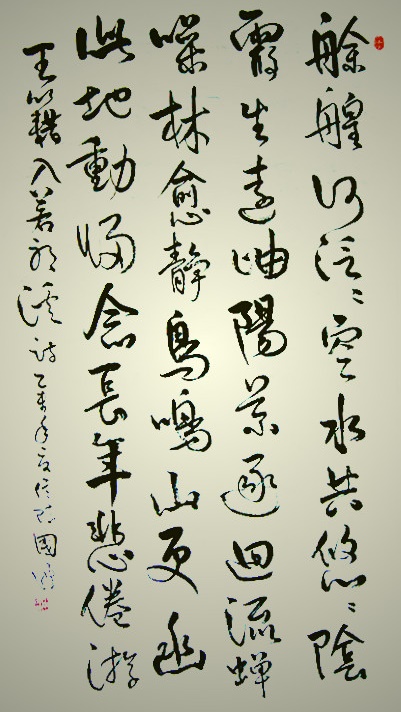 艅艎何泛〻空水共悠〻陰
霞生遠岫陽景逐迴流蟬
噪林愈靜鳥鳴山更幽
此地動歸念長年悲倦游
王籍入若耶溪詩乙未年 國